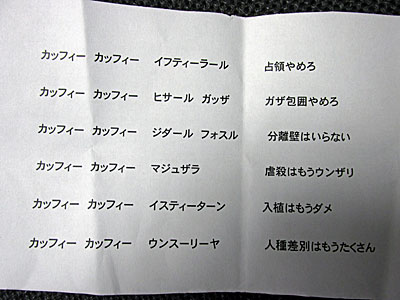 カッフィー カッフィー イフティーラール 占領やめろ
カッフィー カッフィー ヒサール ガッザ ガザ包囲やめろ
カッフィー カッフィー ジダール フォスル 分離壁はいらない
カッフィー カッフィー マジュザラ 虐殺はもうウンザリ
カッフィー カッフィー イスティーターン 入植はもうダメ
カッフィー カッフィー ウンスーリーヤ 人種差別はもうたくさん